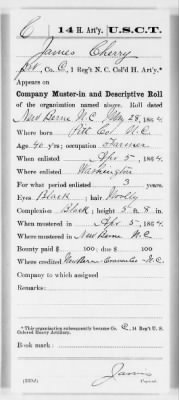 C 14 H. Art'y. U.S.C.T.
James Cherry
Pvt, Co. C, 1 Reg't N. C. Col'd H. Art'y.*
Appears on
Company Muster-in and Descriptive Roll
of the organization named above. Roll dated
New Berne N.C. May 28, 1864.
Where born Pitt Co. N.C.
Age 40 y'rs; occupation Farmer
When enlisted Apr 5, 1864.
Where enlisted Washington
For what period enlisted 3 years.
Eyes Black; hair Woolly
Complexion Black; height 5 ft. 8 in.
When mustered in Apr 5, 1864.
Where mustered in New Berne N.C
Bounty paid $ 100; due $ 100
Where credited New Bern N.C
Company to which assigned
Remarks:
*This organization subsequently became Co. C, 14 Reg't U. S.
Colored Heavy Artillery.
Book mark:
James
Copyist.